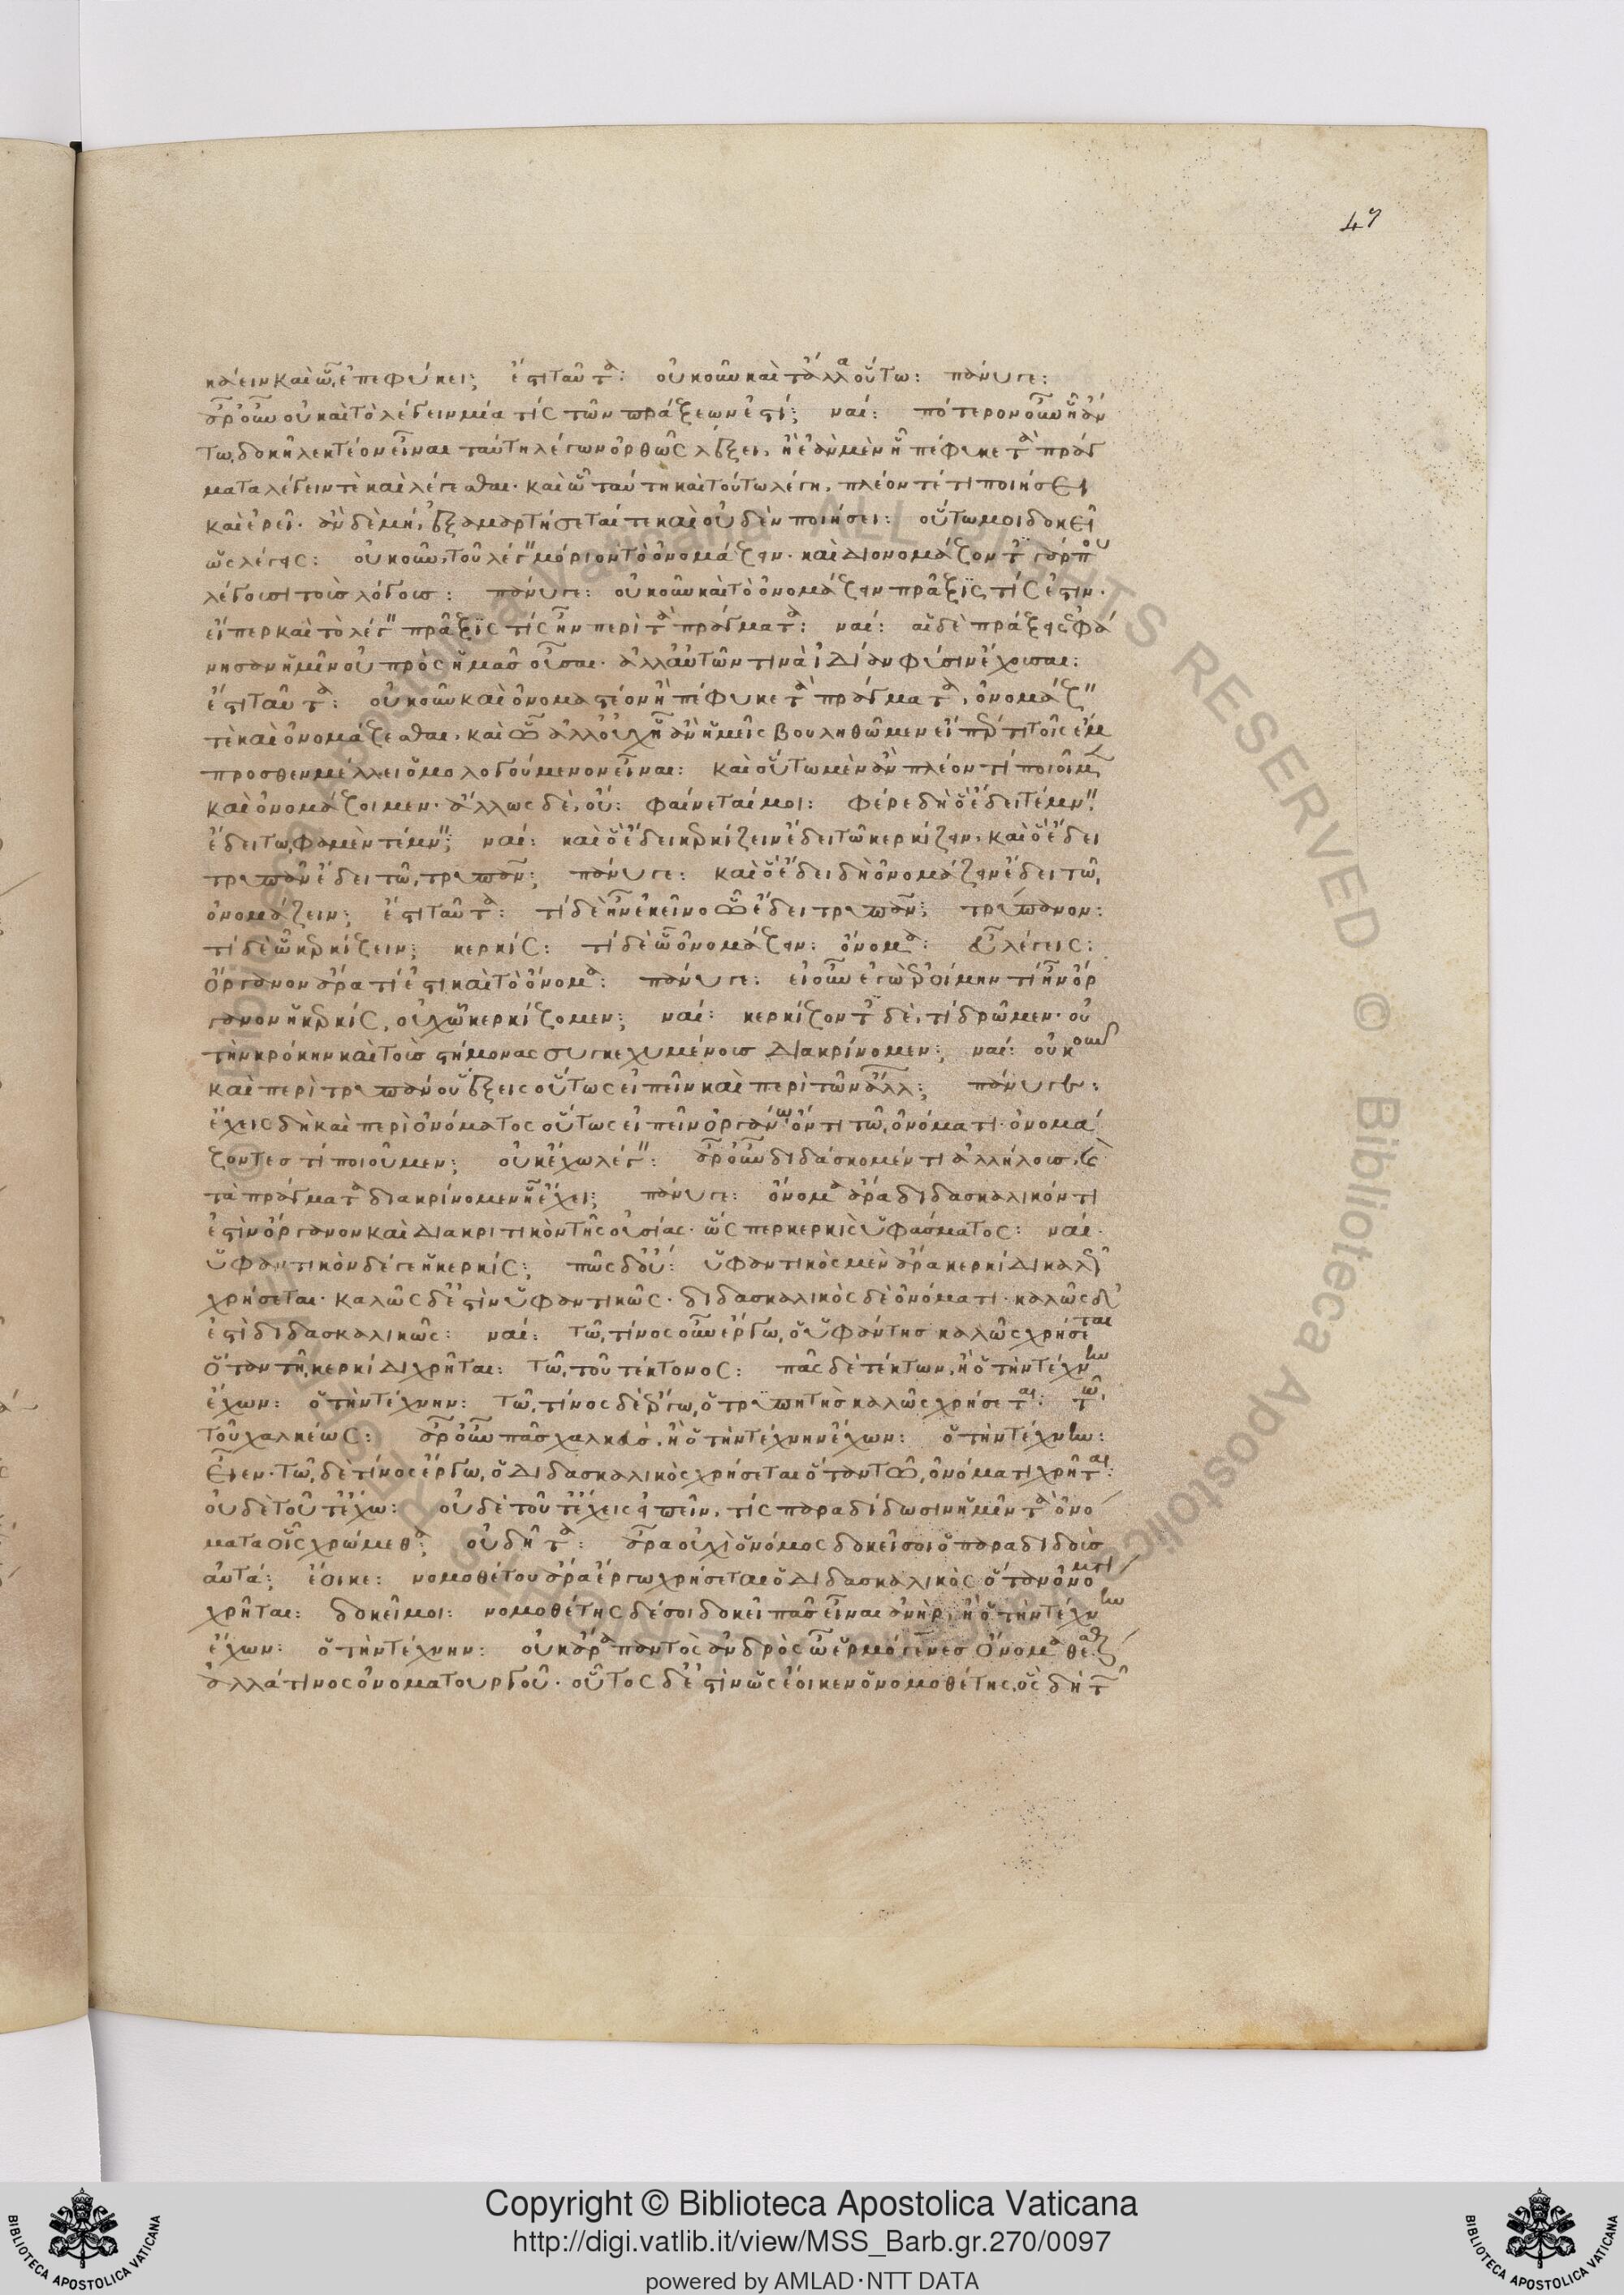 47
κάειν καὶ ὧ ἐπεφύκει; ἔστι ταῦτα: οὐκοῦν καὶ τἄλλα οὕτω: πάνυ γε:
ἆρ οὖν οὐ καὶ τὸ λέγειν μία τίς τῶν πράξεων ἐστί; ναί: πότερον οὖν ἧ ἄν
τω δοκῆ λεκτέον εἶναι ταύτη λέγων ὀρθῶς λέξει, ἢ ἐὰν μὲν ἧ πέφυκε τὰ πράγ
ματα λέγειν τὲ καὶ λέγεσθαι· καὶ ὧ ταύτη καὶ τούτω λέγη, πλέον τέ τι ποιήσει
καὶ ἐρεῖ· ἂν δὲ μή, ἐξαμαρτήσεταί τε καὶ οὐδὲν ποιήσει: οὕτω μοι δοκεῖ
ὡς λέγεις: οὐκοῦν τοῦ λέγειν μόριον τὸ ὀνομάζειν· καὶ διονομάζοντες γάρ που
λέγουσι τοὺς λόγους: πάνυ γε: οὐκοῦν καὶ τὸ ὀνομάζειν πρᾶξίς τίς ἐστιν·
εἴπερ καὶ τὸ λέγειν πρᾶξίς τίς ἦν περὶ τὰ πράγματα: ναί: αἱ δὲ πράξεις ἐφά
νησαν ἡμῖν οὐ πρὸς ἡμᾶς οὖσαι· ἀλλ αὑτῶν τινὰ ἰδίαν φύσιν ἔχουσαι:
ἔστι ταῦτα: οὐκοῦν καὶ ὀνομαστέον ἧ πέφυκε τὰ πράγματα, ὀνομάζειν
τὲ καὶ ὀνομάζεσθαι, καὶ ὧ ἀλλ οὐχ ἧ ἂν ἡμεῖς βουληθῶμεν εἴπερ τι τοῖς ἔμ
προσθεν μέλλει ὁμολογούμενον εἶναι: καὶ οὕτω μὲν ἂν πλέον τί ποιοῖμεν
καὶ ὀνομάζοιμεν· ἄλλως δὲ, οὔ: φαίνεταί μοι: φέρε δὴ ὃ ἔδει τέμνειν,
ἔδει τω φαμὲν τέμνειν; ναί: καὶ ὃ ἔδει κερκίζειν ἔδει τῶ κερκίζειν, καὶ ὃ ἔδει
τρυπᾶν ἔδει τῶ τρυπᾶν; πάνυ γε: καὶ ὃ ἔδει δὴ ὀνομάζειν ἔδει τῶ
ὀνομάζειν; ἔστι ταῦτα: τί δὲ ἦν ἐκεῖνο ὧ ἔδει τρυπᾶν; τρύπανον:
τί δὲ ὧ κερκίζειν; κερκίς: τί δὲ ὧ ὀνομάζειν: ὄνομα: εὖ λέγεις:
ὄργανον ἄρα τί ἐστι καὶ τὸ ὄνομα: πάνυ γε: εἰ οὖν ἐγὼ ἐροίμην τί ἦν ὄρ
γανον ἡ κερκίς, οὐχ ὧ κερκίζομεν; ναί: κερκίζοντες δὲ, τί δρῶμεν· οὐ
τὴν κρόκην καὶ τοὺς στήμονας συγκεχυμένους διακρίνομεν; ναί: οὐκοῦν
καὶ περὶ τρυπάνου ἕξεις οὕτως εἰπεῖν καὶ περὶ τῶν ἄλλων; πάνυ γε:
ἔχεις δὴ καὶ περὶ ὀνόματος οὕτως εἰπεῖν ὀργάνω ὄντι τῶ ὀνόματι· ὀνομά
ζοντες τί ποιοῦμεν; οὐκ ἔχω λέγειν: ἆρ οὖν διδάσκομέν τι ἀλλήλους, καὶ
τὰ πράγματα διακρίνομεν ἧ ἔχει; πάνυ γε: ὄνομα ἄρα διδασκαλικόν τι
ἐστὶν ὄργανον καὶ διακριτικὸν τῆς οὐσίας· ὥς περ κερκὶς ὑφάσματος: ναί·
ὑφαντικὸν δέ γε ἡ κερκίς; πῶς δ οὔ: ὑφαντικὸς μὲν ἄρα κερκίδι καλῶς
χρήσεται· καλῶς δ ἐστὶν ὑφαντικῶς· διδασκαλικὸς δὲ ὀνόματι· καλῶς δ
ἐστὶ διδασκαλικῶς: ναί: τῶ τίνος οὖν ἔργω ὁ ὑφάντης καλῶς χρήσεται
ὅταν τῆ κερκίδι χρῆται: τῶ τοῦ τέκτονος: πᾶς δὲ τέκτων, ἢ ὁ τὴν τέχνην
ἔχων: ὁ τὴν τέχνην: τῶ τίνος δὲ ἔργω ὁ τρυπητὴς καλῶς χρήσεται: τῶ
τοῦ χαλκέως: ἆρ οὖν πᾶς χαλκεύς, ἢ ὁ τὴν τέχνην ἔχων: ὁ τὴν τέχνην:
εἶεν· τῶ δὲ τίνος ἔργω ὁ διδασκαλικὸς χρήσεται ὅταν τῶ ὀνόματι χρῆται:
οὐδὲ τοῦτ ἔχω: οὐδὲ τοῦτ ἔχεις εἰπεῖν, τίς παραδίδωσιν ἡμῖν τὰ ὀνό
ματα οἷς χρώμεθα; οὐ δῆτα: ἆρα οὐχὶ ὁ νόμος δοκεῖ σοι ὁ παραδιδοὺς
αὐτά; ἔοικε: νομοθέτου ἄρα ἔργω χρήσεται ὁ διδασκαλικὸς ὅταν ὀνόματι
χρῆται: δοκεῖ μοι: νομοθέτης δέ σοι δοκεῖ πᾶς εἶναι ἀνήρ, ἢ ὁ τὴν τέχνην
ἔχων: ὁ τὴν τέχνην: οὐκ ἄρα παντὸς ἀνδρὸς ὦ ἑρμόγενες ὄνομα θέσθαι
ἀλλά τινος ὀνοματουργοῦ· οὗτος δ ἐστὶν ὡς ἔοικεν ὁ νομοθέτης, ὃς δὴ τῶν
Copyright © Biblioteca Apostolica Vaticana
http://digi.vatlib.it/view/MSS_Barb.gr.270/0097
powered by AMLAD·NTT DATA